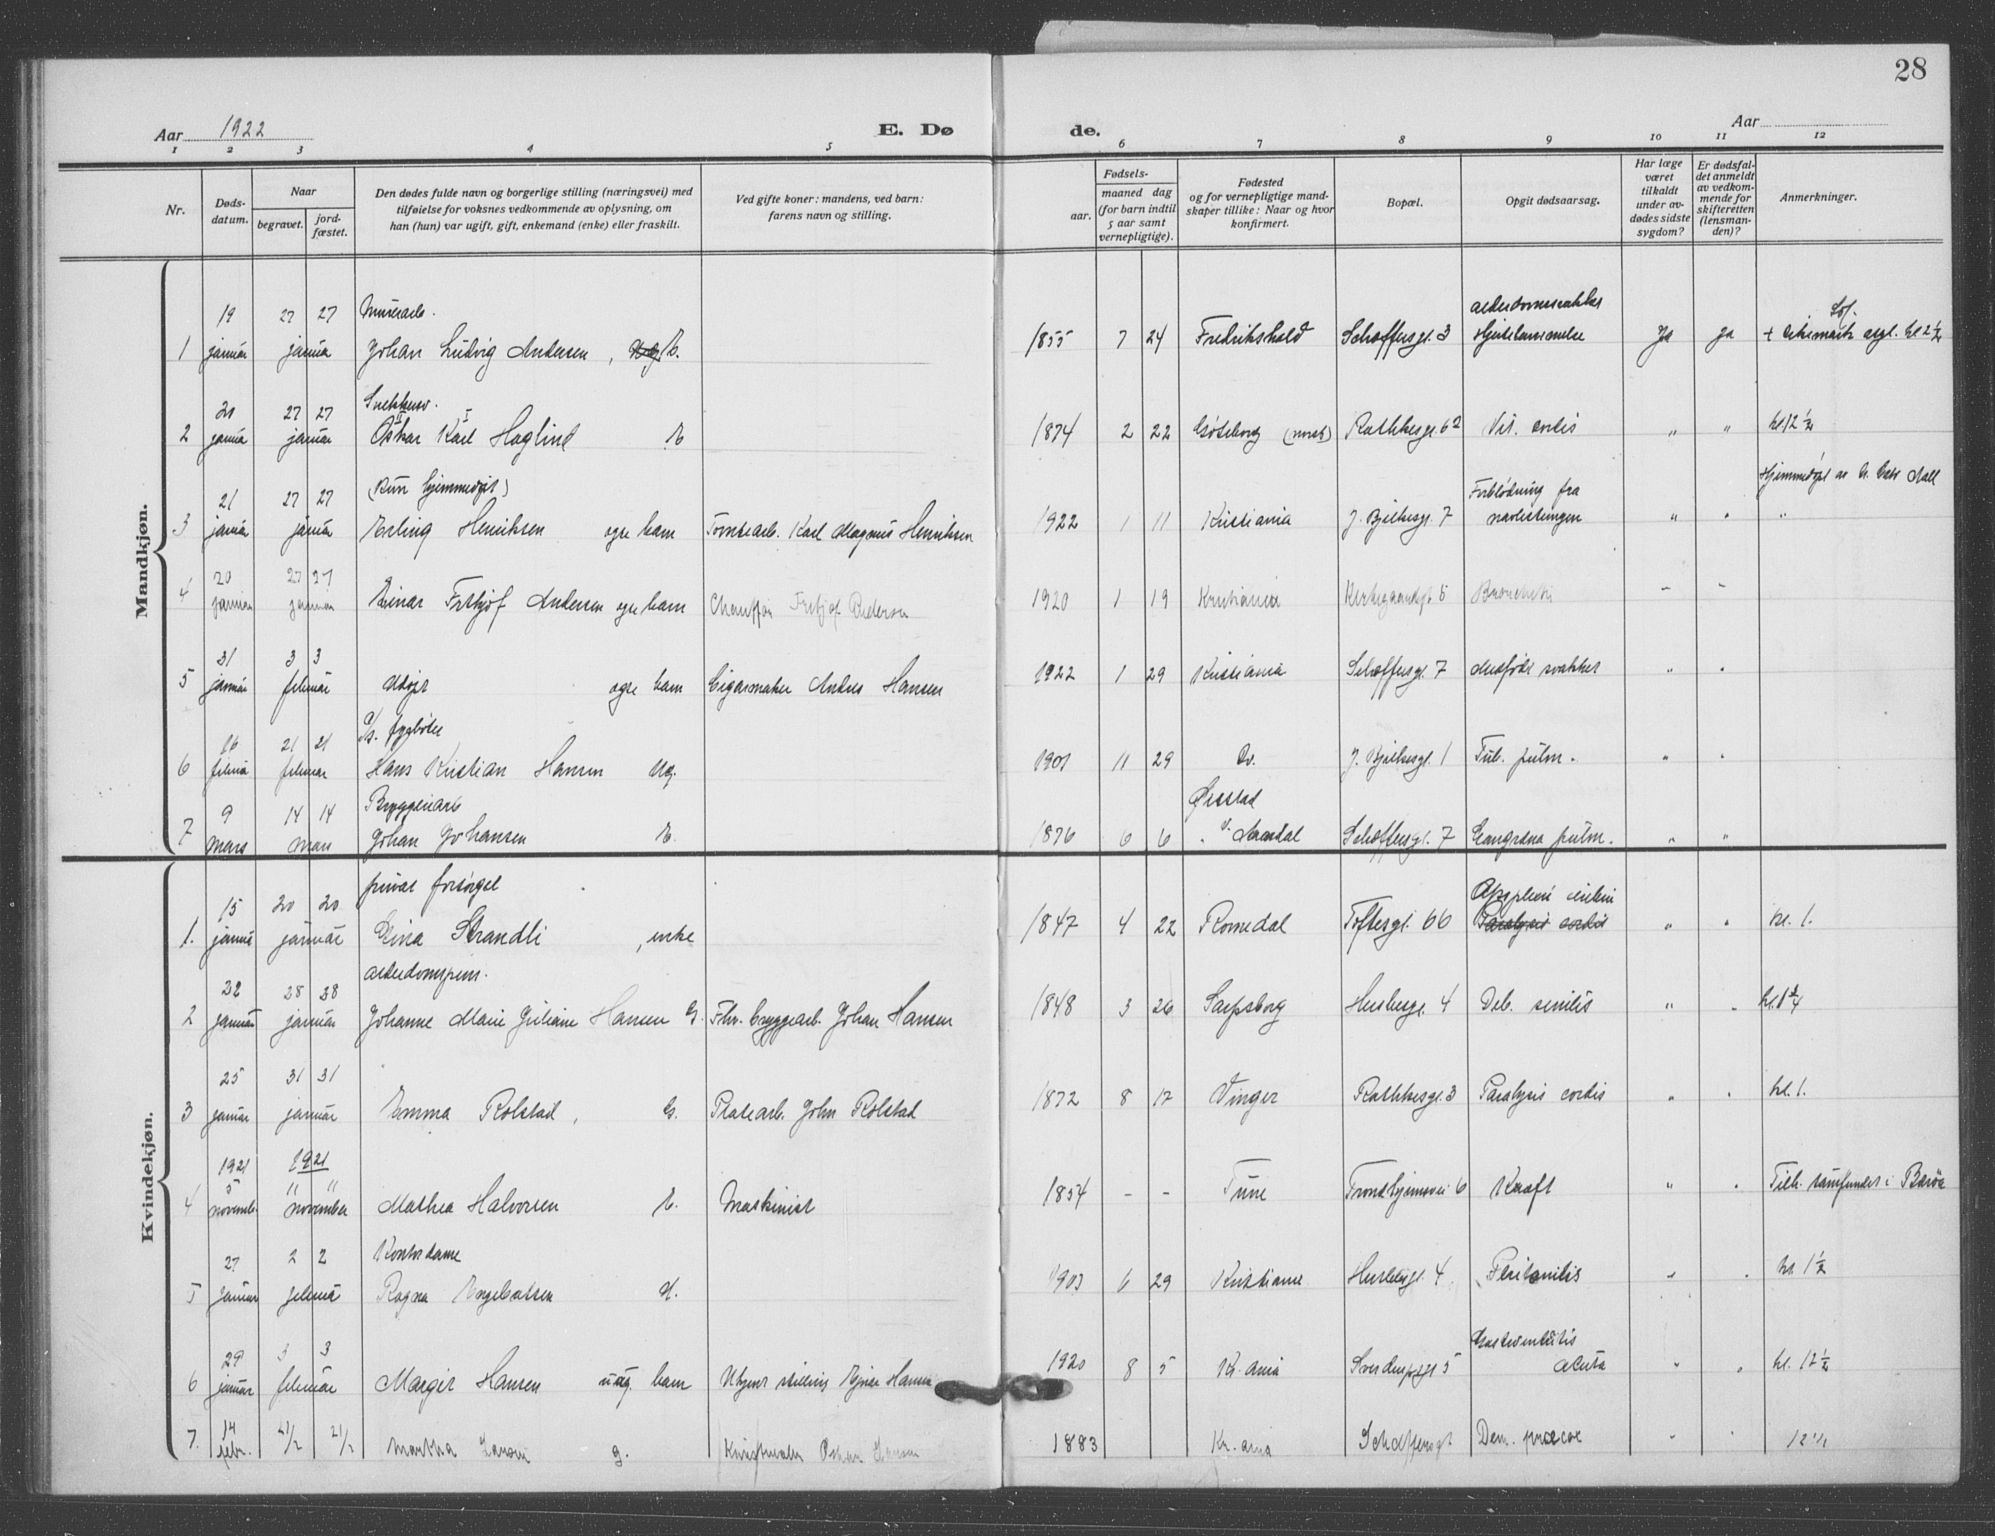 28
Aar 1922
E. Dø
de.
Aar
1 2 3 4 5 6 7 8 9 10 11 12
Nr.
Døds-
datum.
Naar
begravet.
jord-
fæstet.
Den dødes fulde navn og borgerlige stilling (næringsvei) med
tilføielse for voksnes vedkommende av oplysning, om
han (hun) var ugift, gift, enkemand (enke) eller fraskilt.
Ved gifte koner: mandens, ved barn:
farens navn og stilling.
Fødsels-
aar.
maaned dag
(for barn indtil
5 aar samt
vernepligtige).
Fødested
og for vernepligtige mand-
skaper tillike: Naar og hvor
konfirmert.
Bopæl.
Opgit dødsaarsag.
Har læge
været
tilkaldt
under av-
dødes sidste
sygdom?
Er dødsfal-
det anmeldt
av vedkom-
mende for
skifteretten
(lensman-
den)?
Anmerkninger.
Mandkjøn.
19 27 27 Murerarb.
1 januar januar Johan Ludvig Andersen, E. 1855 7 24 Fredrikshald Schæffersgt. 3 Ja Ja
20 27 27
2 januar januar Oskar Karl Haglind E 1874 2 22 Gøteborg (norsk) Rathkesgt. 6 Vit. cordis " " kl 12 1/2
21 27 27 (Kun hjemmedøpt)
3 januar januar Erling Henriksen egte barn Tomtearb. Karl Magnus Henriksen 1922 1 11 Kristiania J. Bjelkesgt. 7 Forblødning fra
navlestrengen " "
20 27 27
4 januar januar Einar Fritjof Andersen egte barn Chauffør Fritjof Andersen 1920 1 19 Kristiania Bronchitis
31 3 3
5 januar februar Udøpt egte barn Cigarmaker Hansen 1922 1 29 Kristiania Schæffersgt. 7 Medfødt svakhet " "
16 21 21 fyrbøter
6 februar februar Hans Kristian Hansen Ug. 1901 11 29 Do. J. Bjelkesgt. 1 Tub. pulm. " "
9 14 14 Bryggeriarb
7 mars mars Johan Johansen E. 1876 6 6 Schæffersgt. 7 Gangræna pulm. " "
Kvindekjøn.
15 20 20 privat forsørget
1. januar januar Strandli, enke 1847 4 22 Romedal Toftesgt. 66 Paralysis cordis " " kl. 1.
22 28 28 alderdomspens.
2 januar januar Johanne Marie Juliane Hansen G. Fhv. bryggearb. Johan Hansen 1848 3 26 Sarpsborg Heslbergt. 4 Deb. senilis " "
25 31 31
3 januar januar Emma Rolstad, G. Platearb. John Rolstad 1872 8 12 Vinger Rathkesgt. 3 Paralysis cordis " " kl. 1.
1921 1921
5 " "
4 november november Mathea Halvorsen E. Maskinist 1854 - - Tune Trondhjemsvei 6 Kræft " "
27 2 2 Kontordame
5 januar februar Ragna Engebretsen U. 1903 6 29 Kristiania Peritonitis " " kl 1 1/2
29 3 3
6 januar februar Margit Hansen uæg. barn Ukjent stilling Hansen 1920 8 5 Kr.ania Gastroenteritis
acuta " " kl. 12 1/2
14
7. febr. 21/2 21/2 Martha Larsen g. Oskar Larsen 1883 Kr.ania Schæffersgt Dem. præcox " "